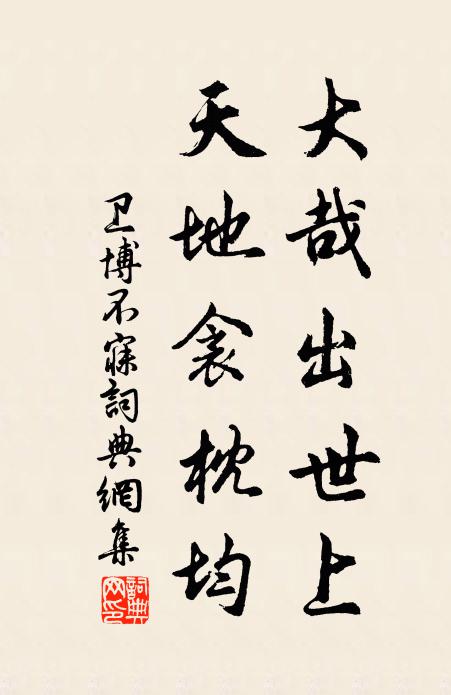 大哉出世上
天地衾枕均
卫博不寐詞典網集
詞典网印